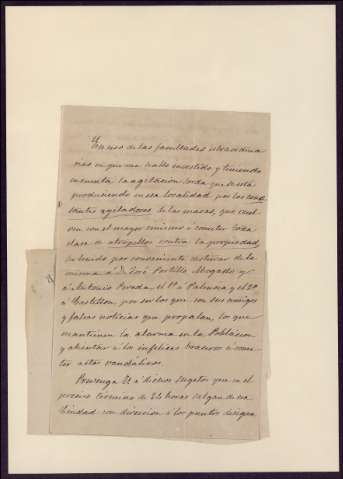 En uso de las facultades estraordina
rias de que me hallo investido y teniendo
en cuenta la agitacion sorda que se está
produciendo en esa localidad por los cons
tantes agitadores de las masas, que vuel
ven con el mayor cinismo á cometer toda
clase de atropellos contra la propiedad,
he tenido por conveniente desterrar de la
misma á D. José Portillo Mogado y
á Antonio Parada, el 1º á Palencia y el 2º
á Castellon, por ser los que con sus amigos
y falsas noticias que propalan, los que
mantienen la alarma en la Poblacion
y alientan á los infelices braceros á come
ter actos vandálicos.
Prevenga V. á dichos sugetos que en el
preciso termino de 24 horas salgan de esa
Ciudad con direccion á los puntos designa